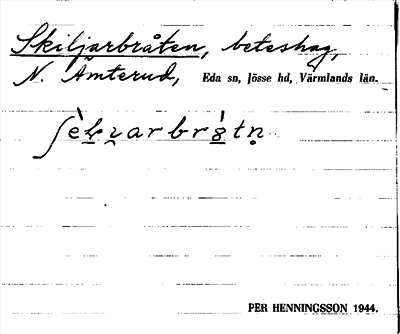 Skiljarbråten, beteshag,
N. Åmterud, Eda sn, Jösse hd, Värmlands län.
PER HENNINGSSON 1944.